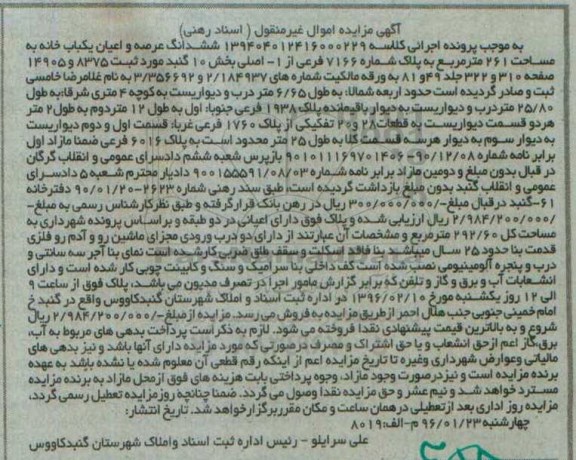 آگهی مزایده اموال غیرمنقول ( اسناد رهنی)
به موجب پرونده اجرائی کلاسه ۱۳۹۴۰۴۰۱۲۴۱۶۰۰۰۲۲۹ ششدانگ عرصه و اعیان یکباب خانه به
مساحت ۲۶۱ مترمربع به پلاک شماره ۷۱۶۶ فرعی از ۱- اصلی بخش ۱۰ گنبد مورد ثبت ۸۳۷۵ و ۱۴۹۰۵
صفحه ۳۱۰ و ۳۲۲ جلد ۴۹ و ۸۱ به ورقه مالکیت شماره های ۲/۱۸۴۹۳۷ و ۳/۳۵۶۶۹۲ به نام غلامرضا خامسی
ثبت و صادر گردیده است حدود اربعه شمالا: به طول ۶/۶۵ متر درب و دیواریست به کوچه ۴ متری شرقا: به طول
۲۵/۸۰ متر درب و دیواریست به دیوار باقیمانده پلاک ۱۹۳۸ فرعی جنوبا: اول به طول ۱۲ متر دوم به طول ۲ متر
هر دو قسمت دیواریست به قطعات ۲۸ و ۲۰ تفکیکی از پلاک ۱۷۶۰ فرعی غربا: قسمت اول و دوم دیواریست
به دیوار سوم به دیوار هر سه قسمت کلا به طول ۲۵ متر محدود است به پلاک ۶۰۱۶ فرعی ضمنا مازاد اول
برابر نامه شماره ۹۰۱۰۱۱۱۶۹۷۰۱۴۰۶-۹۰/۱۲/۰۸ بازپرس شعبه ششم دادسرای عمومی و انقلاب گرگان
در قبال بدون مبلغ و دومین مازاد برابر نامه شماره ۹۰۰۱۵۵۵۹۱/۰۸/۰۳ دادیار محترم شعبه ۵ دادسرای
عمومی و انقلاب گنبد بدون مبلغ بازداشت گردیده است، طبق سند رهنی شماره ۲۶۲۳-۹۰/۰۱/۲۰ دفترخانه
۶۱- گنبد در قبال مبلغ ۳۰۰/۰۰۰/۰۰۰/- ریال در رهن بانک قرار گرفته و طبق نظر کارشناس رسمی به مبلغ-
/۲/۹۸۴/۲۰۰/۰۰۰ ریال ارزیابی شده و پلاک فوق دارای اعیانی در دو طبقه و براساس پرونده شهرداری به
مساحت کل ۲۹۲/۶۰ مترمربع و مشخصات آن عبارتند از دارای دو درب ورودی مجزای ماشین رو و آدم رو فلزی
قدمت بنا حدود ۲۵ سال میباشد بنا فاقد اسکلت و سقف طاق ضربی کار شده است نمای بنا آجر سه سانتی و
درب و پنجره آلومینیومی نصب شده است کف داخلی بنا سرامیک و سنگ و کابینت چوبی کار شده است و دارای
انشعابات آب و برق و گاز و تلفن که برابر گزارش مامور اجرا در تصرف مدیون می باشد، پلاک فوق از ساعت ۹
الی ۱۲ روز یکشنبه مورخ ۱۳۹۶/۰۲/۱۰ در اداره ثبت اسناد و املاک شهرستان گنبدکاووس واقع در گنبد خ
امام خمینی جنوبی جنب هلال احمر از طریق مزایده به فروش می رسد. مزایده از مبلغ ۲/۹۸۴/۲۰۰/۰۰۰/- ریال
شروع و به بالاترین قیمت پیشنهادی نقدا فروخته می شود. لازم به ذکر است پرداخت بدهی های مربوط به آب،
برق،گاز اعم از حق انشعاب و یا حق اشتراک و مصرف در صورتی که مورد مزایده دارای آنها باشد و نیز بدهی های
مالیاتی و عوارض شهرداری و غیره تا تاریخ مزایده اعم از اینکه رقم قطعی آن معلوم شده یا نشده باشد به عهده
برنده مزایده است و نیز در صورت وجود مازاد، وجوه پرداختی بابت هزینه های فوق از محل مازاد به برنده مزایده
مسترد خواهد شد و نیم عشر و حق مزایده نقدا وصول می گردد. ضمنا چنانچه روز مزایده تعطیل رسمی گردد،
مزایده روز اداری بعد از تعطیلی در همان ساعت و مکان مقرر برگزار خواهد شد. تاریخ انتشار:
چهارشنبه ۹۶/۰۱/۲۳ م-الف: ۸۰۱۹
علی سرایلو - رئیس اداره ثبت اسناد و املاک شهرستان گنبدکاووس